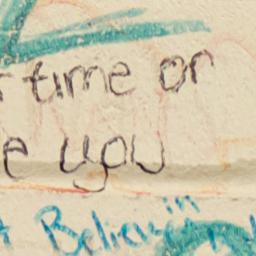 time or
e you
Believin'